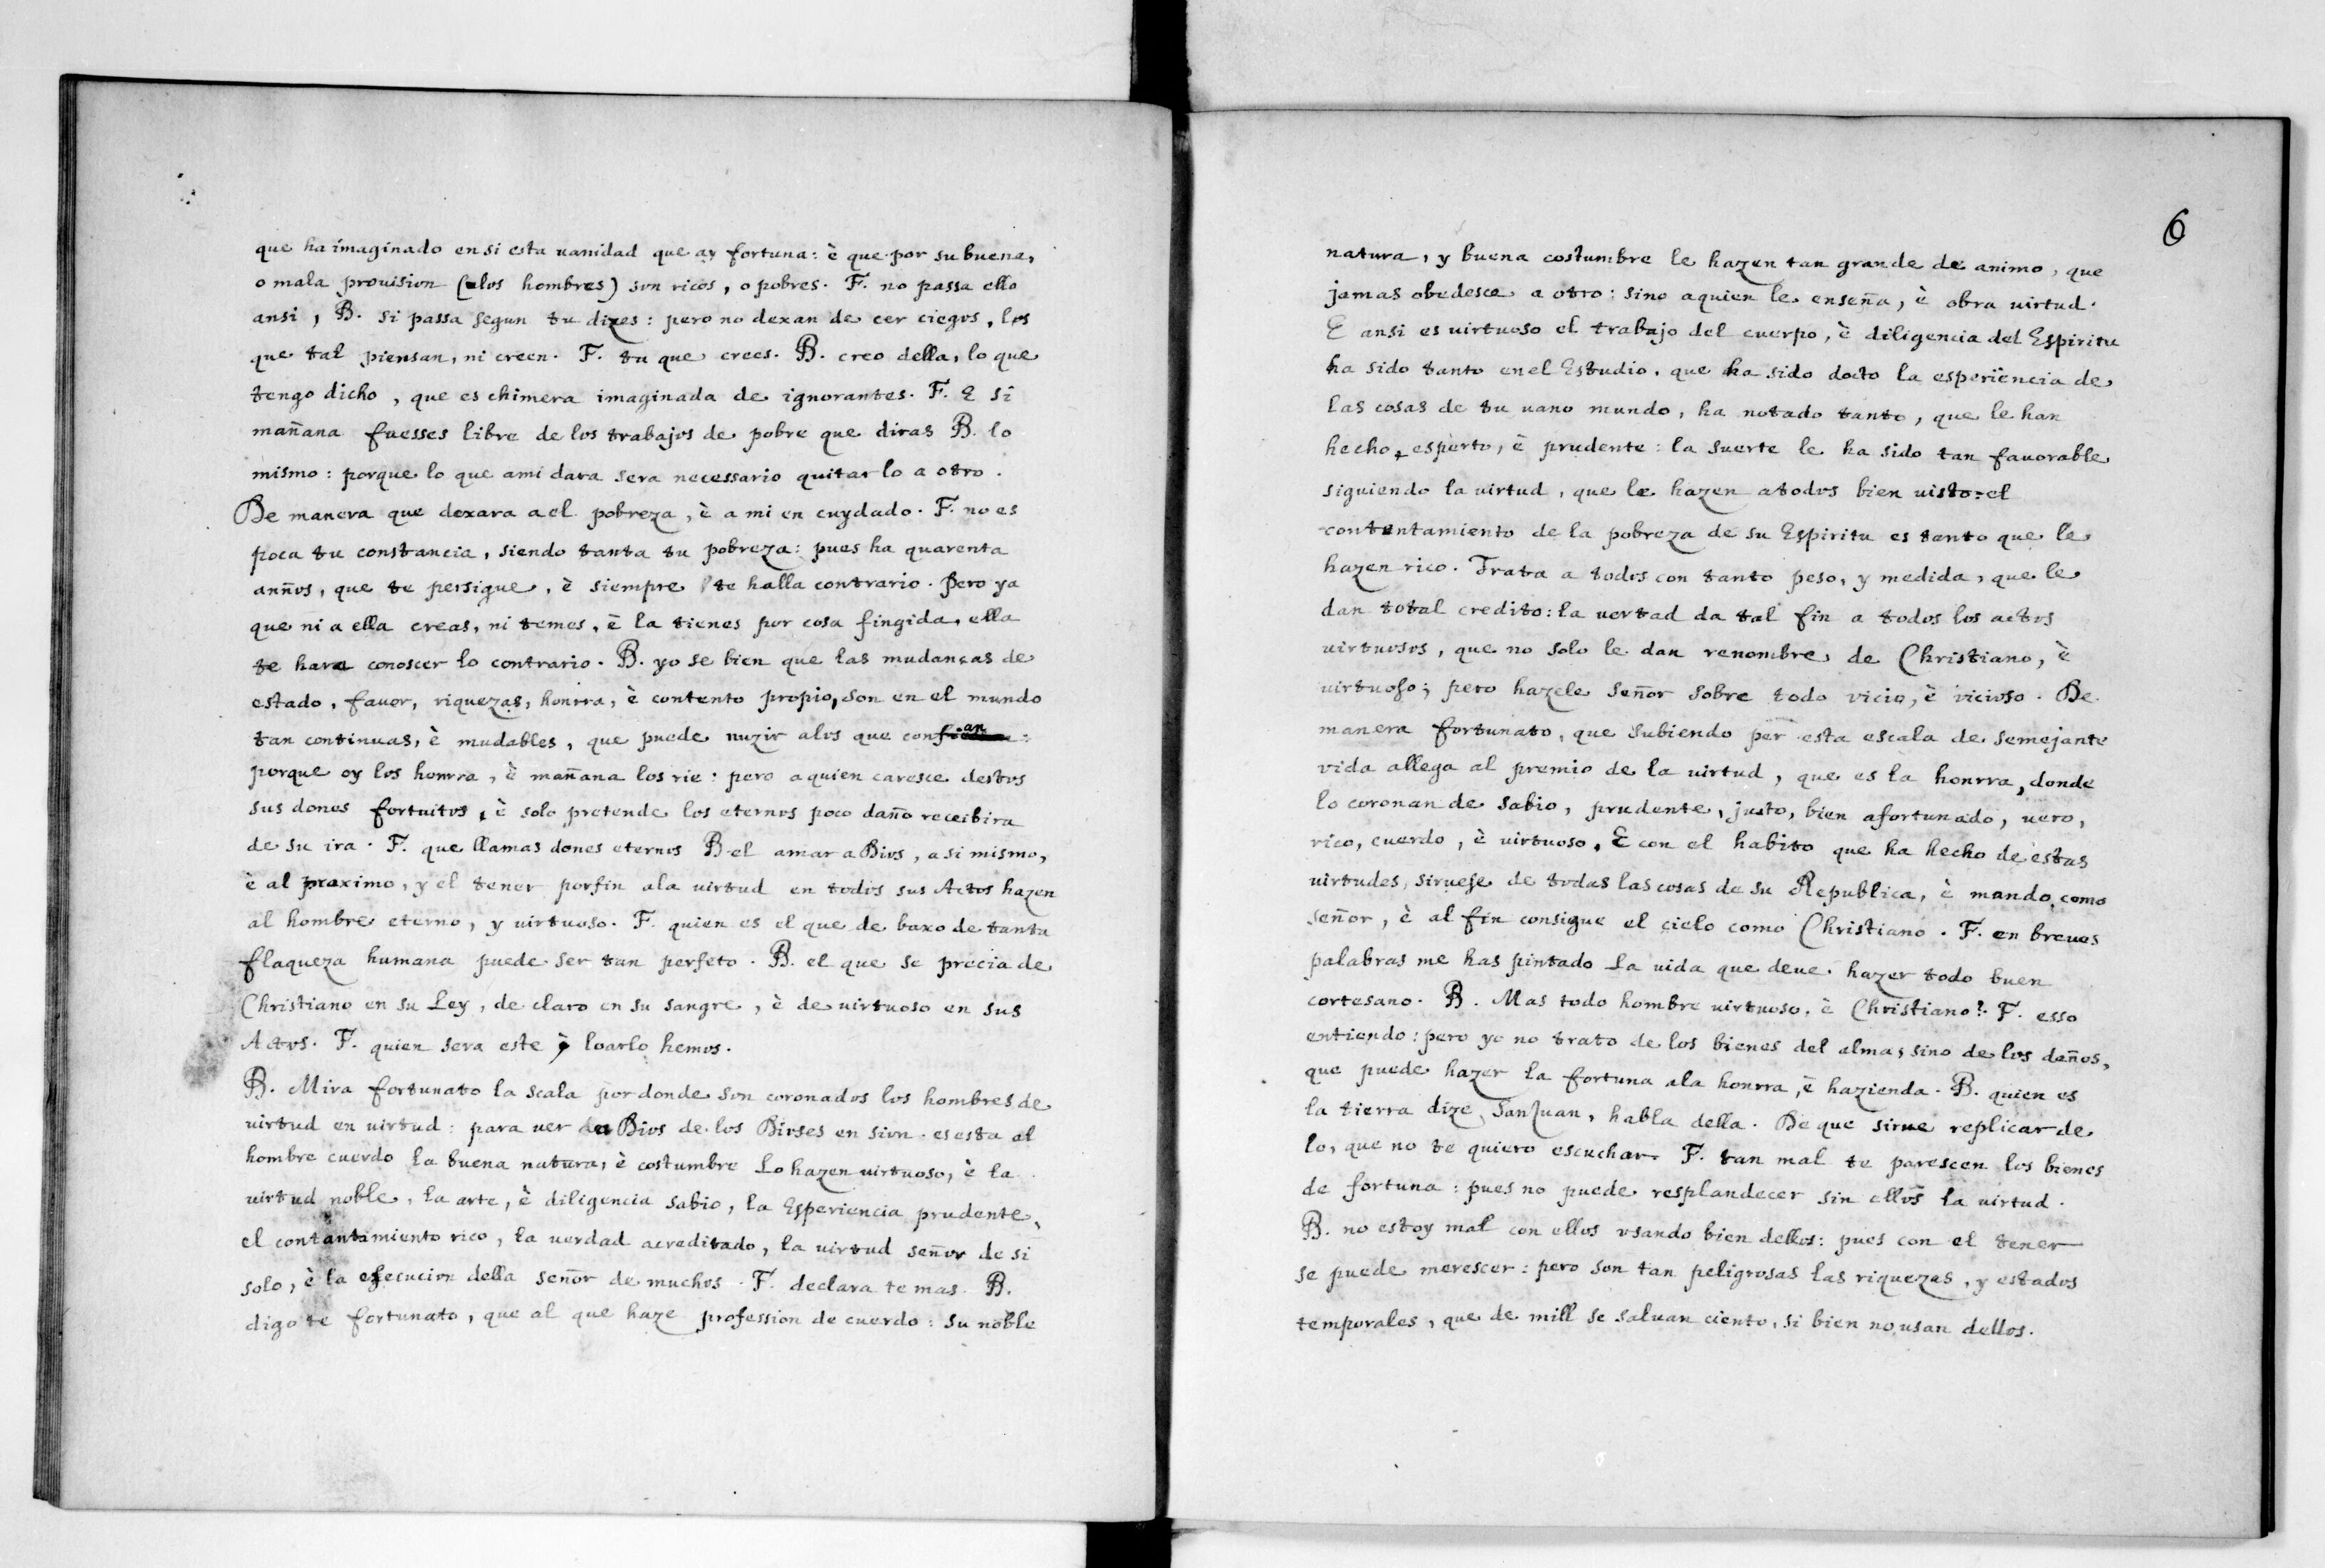 que ha imaginado en si esta uanidad que ay fortuna: è que por su buena,
o mala prouision (alos hombres) son ricos, o pobres. F. no passa ello
ansi, B. si passa segun tu dizes: pero no dexan de cer ciegos, los
que tal piensan, ni creen. F. tu que crees. B. creo della, lo que
tengo dicho, que es chimera imaginada de ignorantes. F. E si
mañana fuesses libre de los trabajos de pobre que diras B. lo
mismo: porque lo que ami dara sera necessario quitarlo a otro.
De manera que dexara ael pobreza, è a mi en cuydado. F. no es
poca tu constancia, siendo tanta tu pobreza: pues ha quarenta
anños, que te persigue, è siempre te halla contrario. Pero ya
que ni a ella creas, ni temes, è la tienes por cosa fingida, ella
te hara conoscer lo contrario. B. yo se bien que las mudanças de
estado, fauor, riquezas, honrra, è contento propio, son en el mundo
tan continuas, è mudables, que puede nuzir alos que confian:
porque oy los honrra, è mañana los rie: pero aquien caresce destos
sus dones fortuitos, è solo pretende los eternos poco daño recibira
de su ira. F. que llamas dones eternos B. el amar a Dios, a si mismo,
è al proximo, y el tener porfin ala uirtud en todos sus Actos hazen
al hombre eterno, y uirtuoso. F. quien es el que de baxo de tanta
flaqueza humana puede ser tan perfeto. B. el que se precia de
Christiano en su Ley, de claro en su sangre, è de uirtuoso en sus
Actos. F. quien sera este y loarlo hemos.
B. Mira fortunato la scala por donde son coronados los hombres de
uirtud en uirtud: para uer Dios de los Dioses en sion. es esta al
hombre cuerdo la buena natura, è costumbre lo hazen uirtuoso, è la
uirtud noble, la arte, è diligencia sabio, la Esperiencia prudente,
el contantamiento rico, la uerdad acreditado, la uirtud señor de si
solo, è la esecucion della señor de muchos. F. declara te mas. B.
digo te fortunato, que al que haze profession de cuerdo: su noble
6
natura, y buena costumbre le hazen tan grande de animo, que
jamas obedesce a otro: sino aquien le enseña, è obra uirtud.
E ansi es uirtuoso el trabajo del cuerpo, è diligencia del Espiritu
ha sido tanto enel Estudio, que ha sido docto la esperiencia de
las cosas de tu uano mundo, ha notado tanto, que le han
hecho, esperto, è prudente: la suerte le ha sido tan fauorable
siguiendo la uirtud, que le hazen atodos bien uisto: el
contentamiento de la pobreza de su Espiritu es tanto que le
hazen rico. Trata a todos con tanto peso, y medida, que le
dan total credito: la uertad da tal fin a todos los actos
uirtuosos, que no solo le dan renombre de Christiano, è
uirtuoso; pero hazele señor sobre todo vicio, è vicioso. De
manera fortunato, que subiendo per esta escala de semejante
vida allega al premio de la uirtud, que es la honrra, donde
lo coronan de sabio, prudente, justo, bien afortunado, uero,
rico, cuerdo, è uirtuoso. E con el habito que ha hecho de estas
uirtudes, siruese de todas las cosas de su Republica, è mando, como
señor, è al fin consigue el cielo como Christiano. F. en breues
palabras me has pintado la uida que deue hazer todo buen
cortesano. B. Mas todo hombre uirtuoso, è Christiano? F. esso
entiendo: pero yo no trato de los bienes del alma; sino de los daños,
que puede hazer la fortuna ala honrra, è hazienda. B. quien es
la tierra dize SanJuan, habla della. De que sirue replicar de
lo, que no te quiero escuchar. F. tan mal te parescen los bienes
de fortuna: pues no puede resplandecer sin ellos la uirtud.
B. no estoy mal con ellos vsando bien dellos: pues con el tener
se puede merescer: pero son tan peligrosas las riquezas, y estados
temporales, que de mill se saluan ciento, si bien no usan dellos.